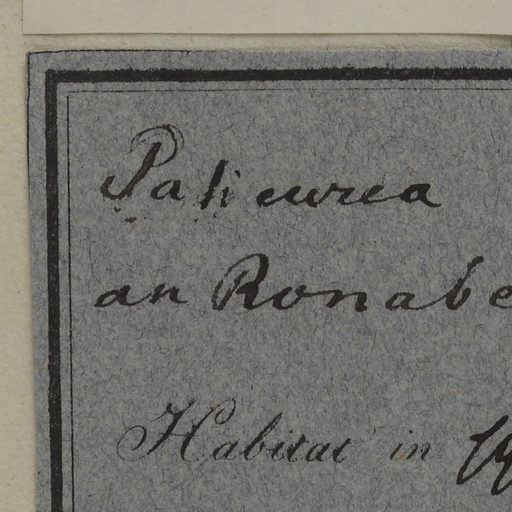 Palicurea
an Ronabe
Habitat in